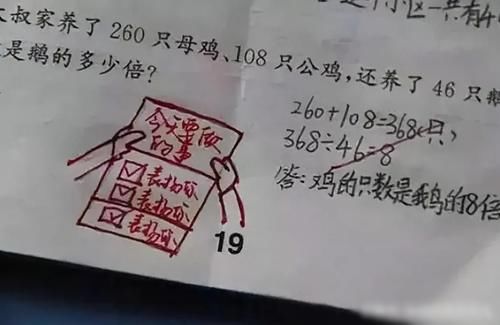 小区一共有4
大叔家养了260只母鸡、108只公鸡,还养了46只鹅
是鹅的多少倍?
260+108=368(只)
368÷46=8
答:鸡的只数是鹅的8倍
今天要做
的事
表扬你
表扬你
表扬你
19